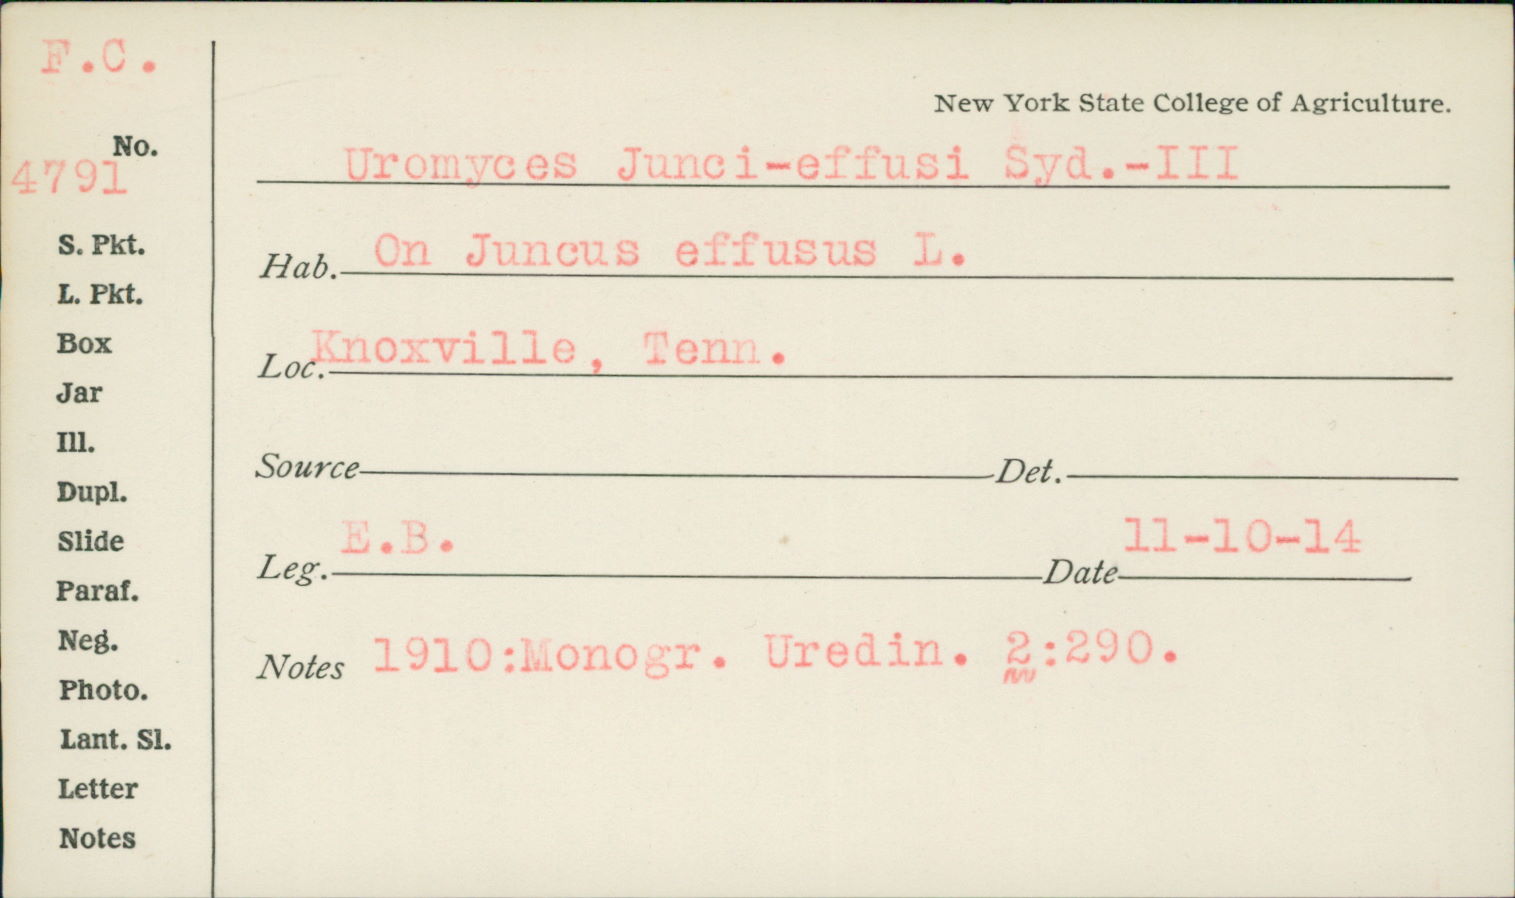 F.C.
New York State College of Agriculture.
No.
4791
Uromyces Junci-effusi Syd.-III
S. Pkt.
Hab. On Juncus effusus L.
L. Pkt.
Box
Loc. Knoxville, Tenn.
Jar
Ill.
Source Det.
Dupl.
Slide
Leg. E.B. Date 11-10-14
Paraf.
Neg.
Notes 1910:Monogr. Uredin. 2:290.
Photo.
Lant. Sl.
Letter
Notes